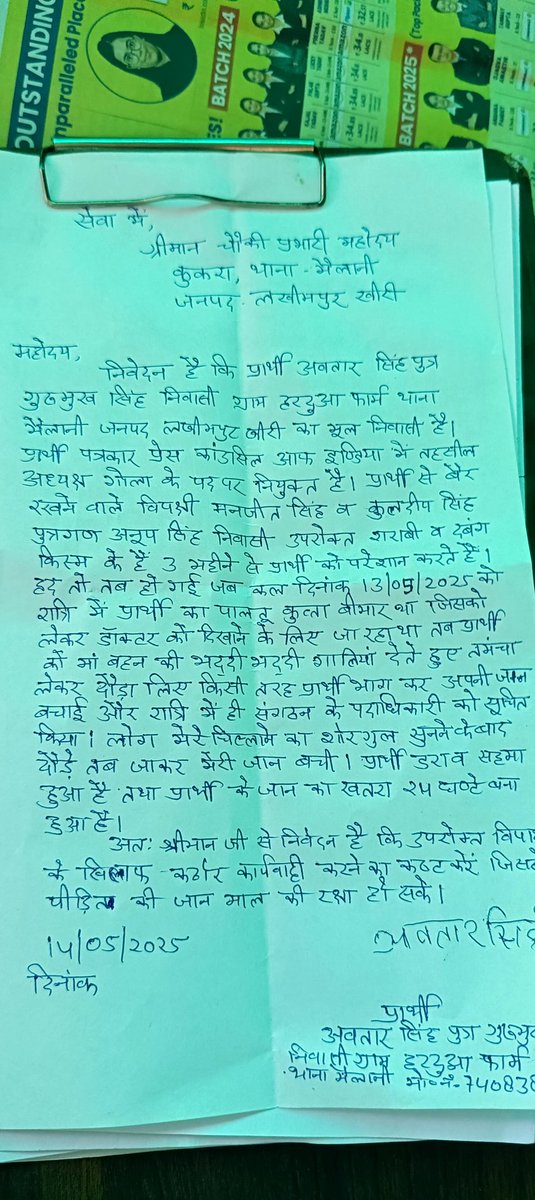 OUTSTANDING
nparalleled Place
BATCH 2024
BATCH 2025*
(Top Pac
सेवा में,
श्रीमान चौकी प्रभारी महोदय
कुकरा, थाना - मैलानी
जनपद - लखीमपुर खीरी
महोदय,
निवेदन है कि प्रार्थी अवतार सिंह पुत्र
गुरूमुख सिंह निवासी ग्राम हरदुआ फार्म थाना
मैलानी जनपद लखीमपुर खीरी का मूल निवासी है।
प्रार्थी पत्रकार प्रेस कांउसिल आफ इण्डिया में तहसील
अध्यक्ष गोला के पद पर नियुक्त है। प्रार्थी से बैर
रखने वाले विपक्षी मनजीत सिंह व कुलदीप सिंह
पुत्रगण अनूप सिंह निवासी उपरोक्त शराबी व दबंग
किस्म के हैं 3 महीने से प्रार्थी को परेशान करते हैं।
हद तो तब हो गई जब कल दिनांक 13/05/2025 को
रात्रि में प्रार्थी का पालतू कुत्ता बीमार था जिसको
लेकर डॉक्टर को दिखाने के लिए जा रहा था तब प्रार्थी
को मां बहन की भद्दी भद्दी गालियां देते हुए तमंचा
लेकर दौड़ा लिए किसी तरह प्रार्थी भाग कर अपनी जान
बचाई और रात्रि में ही संगठन के पदाधिकारी को सूचित
किया। लोग मेरे चिल्लाने का शोरगुल सुनने के बाद
दौड़े तब जाकर मेरी जान बची। प्रार्थी डराव सहमा
हुआ है तथा प्रार्थी के जान का खतरा 24 घण्टे बना
हुआ है।
अतः श्रीमान जी से निवेदन है कि उपरोक्त
के खिलाफ कठोर कार्यवाही करने का कष्ट करें
पीड़ित की जान माल की रक्षा हो सके।
14/05/2025
अवतार सिं
दिनांक
प्रार्थी
अवतार सिंह पुत्र गुरूमु
निवासी ग्राम हरदुआ फार्म
थाना मैलानी मो०नं०- 740838